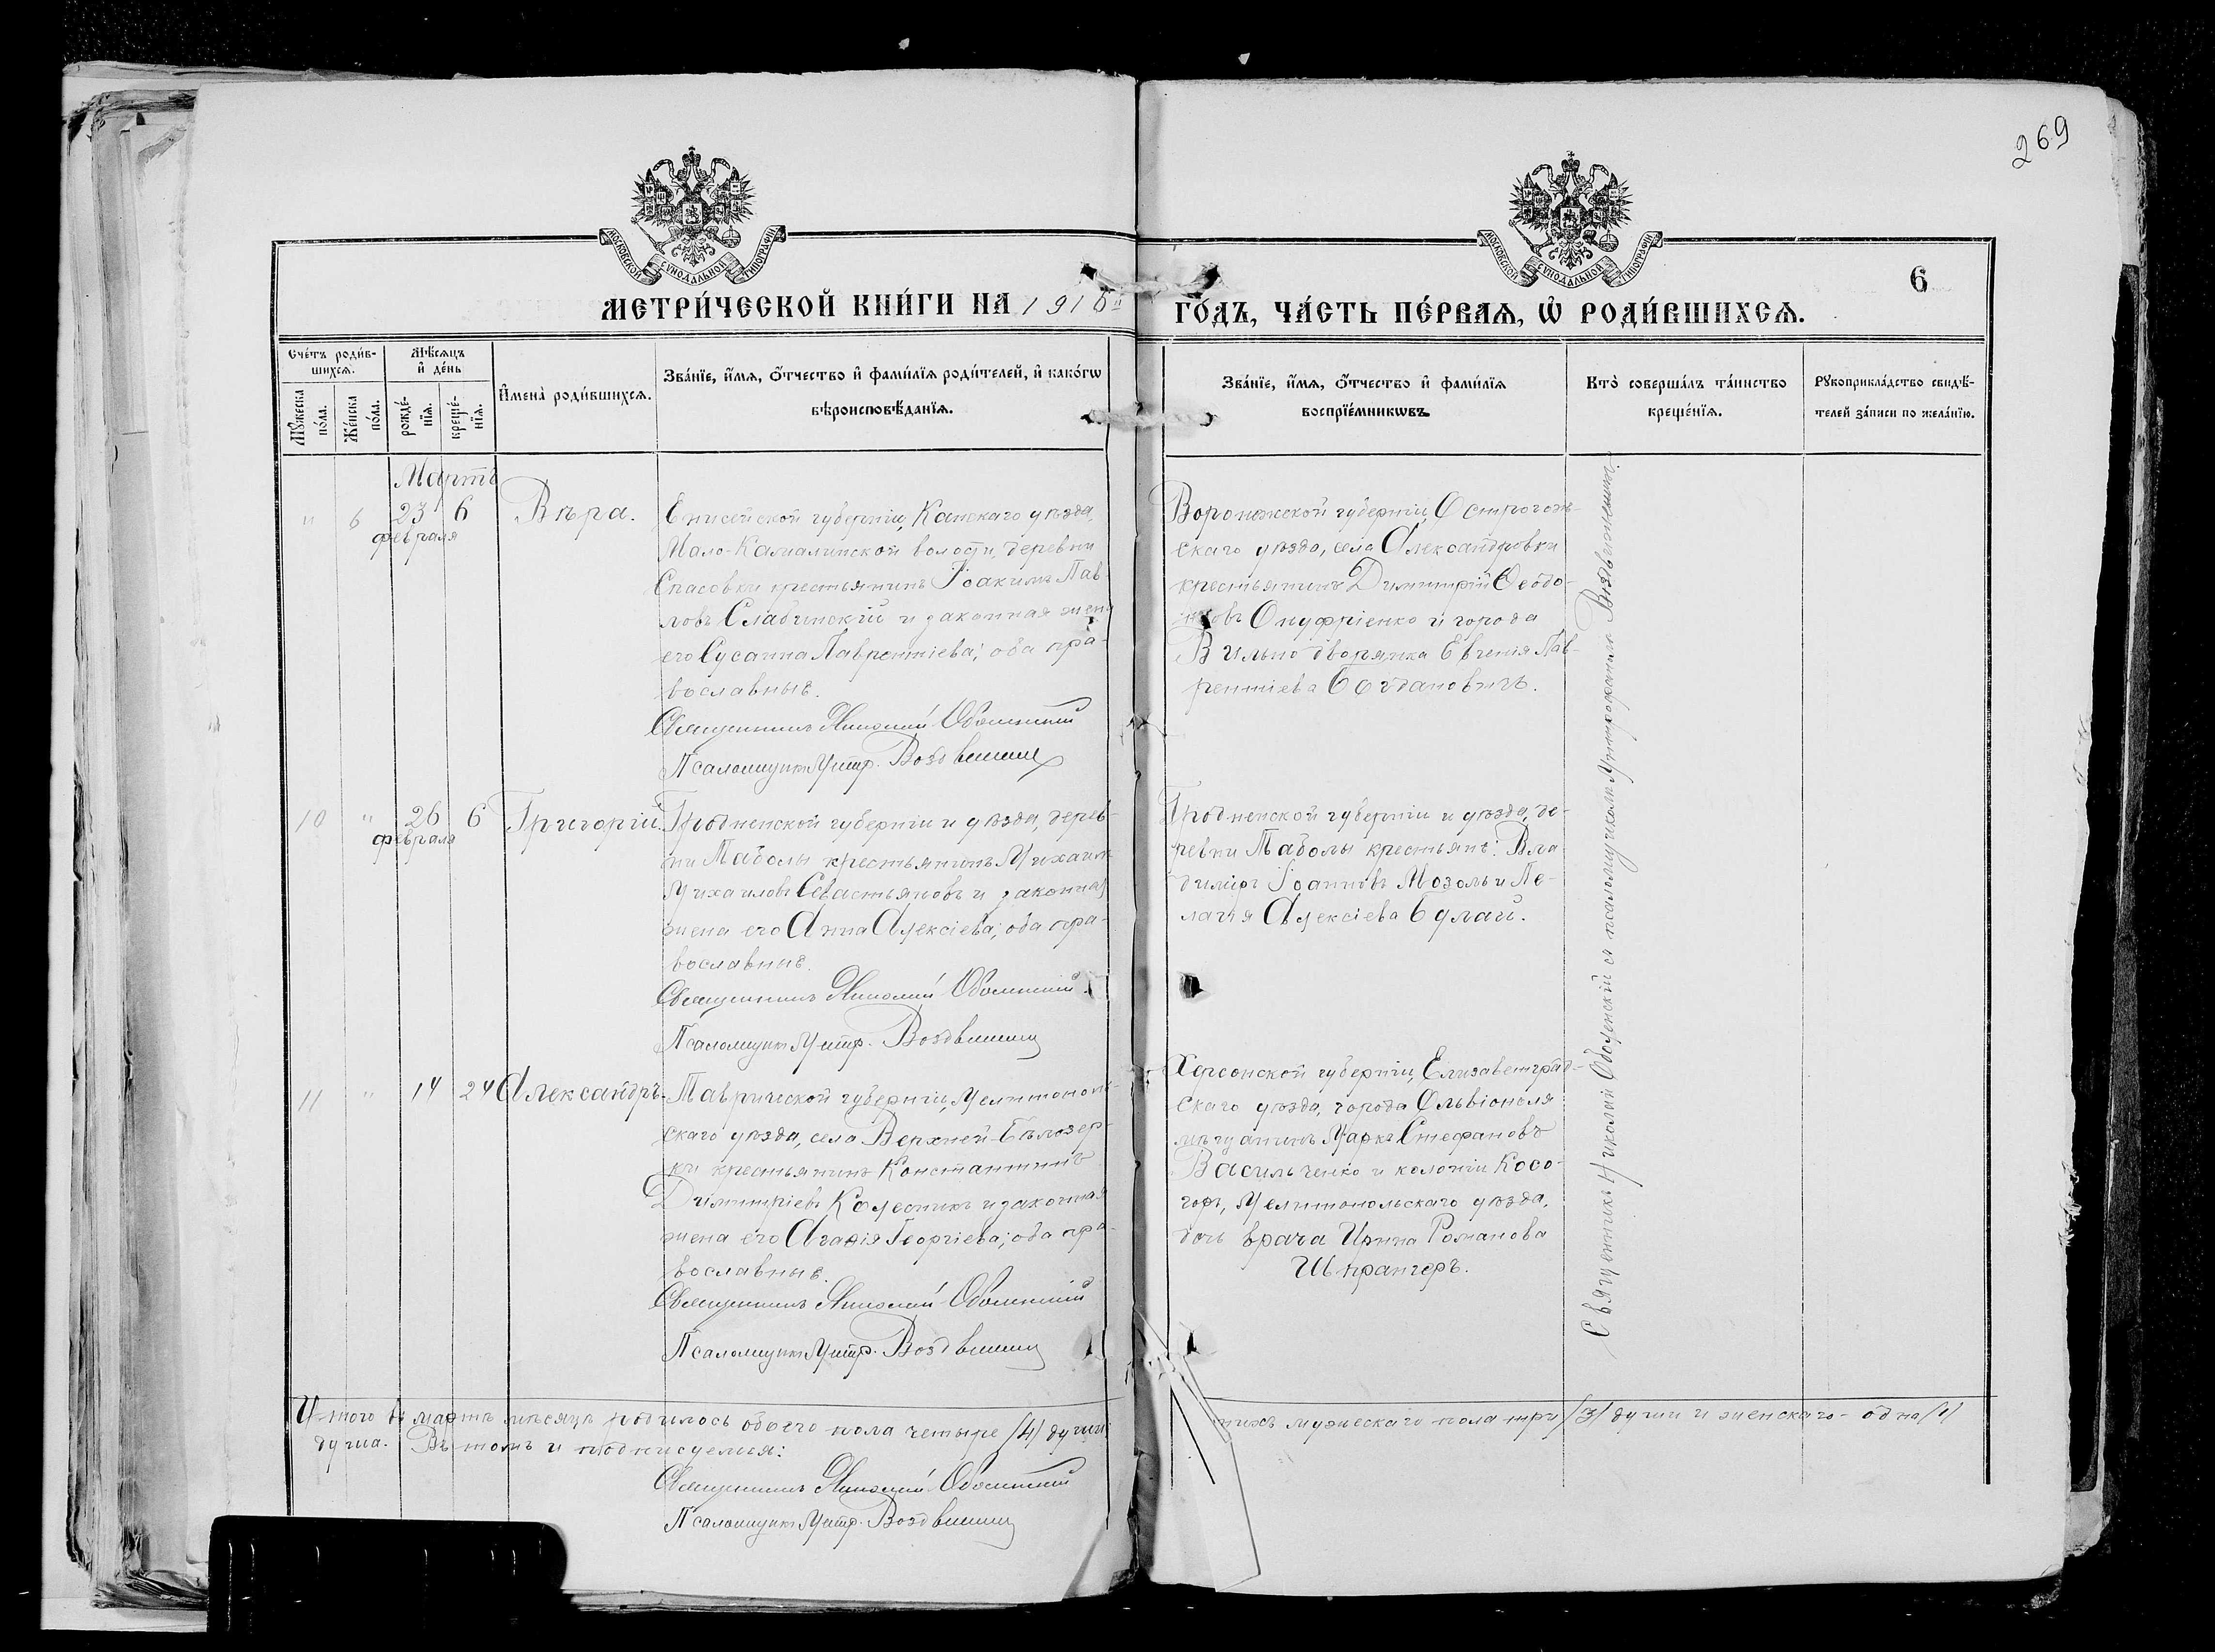 269
МОСКОВСКОЙ СѴНОДАЛЬНОЙ ТИПОГРАФІИ
МОСКОВСКОЙ СѴНОДАЛЬНОЙ ТИПОГРАФІИ
6
МЕТРИ́ЧЕСКОЙ КНИ́ГИ НА 1916й
ГО́ДЪ, ЧА́СТЬ ПЕ́РВАЯ, Ѡ РОДИ́ВШИХСЯ.
Сче́тъ роди́в-
шихся.
Мѣ́сяцъ
и҆ де́нь
Мꙋ́жеска
по́ла.
Же́нска
по́ла.
рожде́-
нїя.
креще́-
нїя.
И҆мена̀ роди́вшихся.
Зва́нїе, и҆́мя, ѻ҆́тчество и҆ фами́лїя роди́телей, и҆ како́гѡ
вѣроисповѣ́данїя.
Зва́нїе, и҆́мя, ѻ҆́тчество и҆ фами́лїя
воспрїе́мникѡвъ.
Кто̀ соверша́лъ та́инство
креще́нїя.
Рꙋкоприкла́дство свидѣ́-
телей за́писи по жела́нїю.
Мартъ
" 6 23 6 Вѣра.
февраля
Енисейской губерніи, Канскаго уѣзда,
Мало-Камалинской волости, деревни
Спасовки крестьянинъ Іоакимъ Пав-
ловъ Слабинскій и законная жена
его Сусанна Лаврентіева; оба пра-
вославные.
Священникъ Николай Оболенскій
Псаломщикъ Митр. Воздвиженск
Воронежской губерніи, Острогож-
скаго уѣзда, села Александровки
крестьянинъ Димитрій Ѳеодо-
Онуфріенко и города
Вильно дворянка Евгенія Лав-
рентіева Богдановичъ.
10 " 26 6 Григорій.
февраля
Гродненской губерніи и уѣзда, дерев-
ни Таболы крестьянинъ Михаилъ
Михаиловъ Севастьяновъ и законная
жена его Анна Алексіева; оба пра-
вославные.
Священникъ Николай Оболенскій
Псаломщикъ Митр. Воздвиженск
Гродненской губерніи и уѣзда, де-
ревни Таболы крестьяне: Вла-
димиръ Іоанновъ Мозоль и Пе-
лагія Алексіева Булай.
11 " 14 24 Александръ.
Таврической губерніи, Мелитополь-
скаго уѣзда, села Верхней-Бѣлозер-
ки крестьянинъ Константинъ
Димитріевъ Колесникъ и законная
жена его Агафія Георгіева; оба пра-
вославные.
Священникъ Николай Оболенскій
Псаломщикъ Митр. Воздвиженск
Херсонской губерніи, Елизаветград-
скаго уѣзда, города Ольвіополя
мѣщанинъ Маркъ Стефановъ
Васильченко и колоніи Косо-
горъ, Мелитопольскаго уѣзда,
дочь врача Ирина Романова
Шпрангеръ.
Священникъ Николай Оболенскій съ псаломщикомъ Митрофаномъ
Итого въ мартѣ мѣсяцѣ родилось обоего пола четыре /4/ души
нихъ мужескаго пола три /3/ души и женскаго - одна /1/
душа. Въ томъ и подписуемся:
Священникъ Николай Оболенскій
Псаломщикъ Митр. Воздвиженск